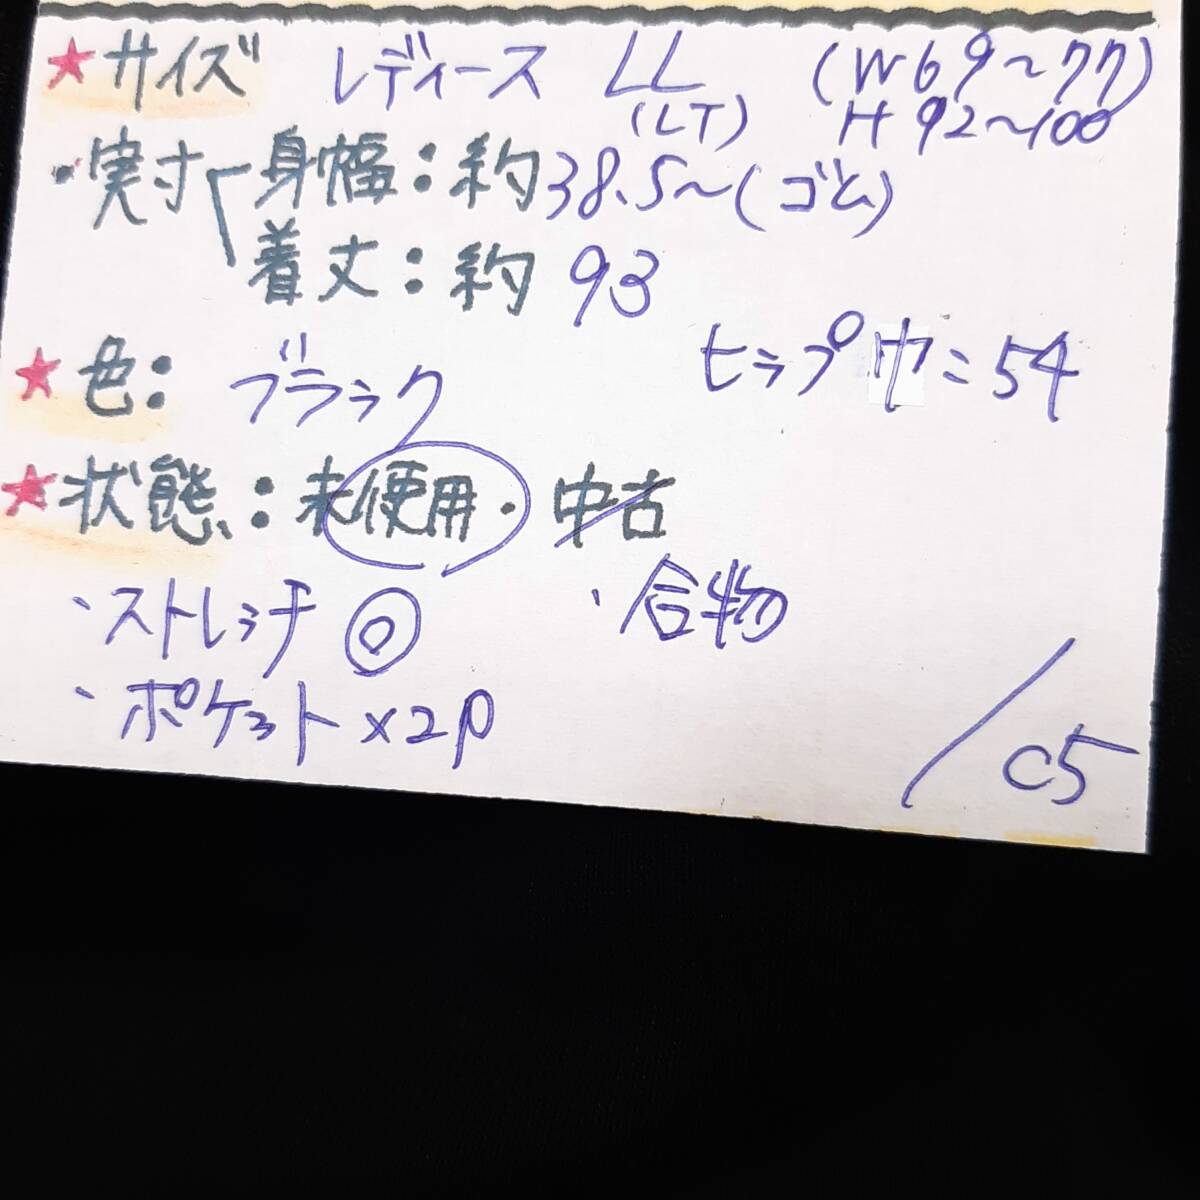 ★サイズ レディース LL (W69～77)
(LT) H 92～100
・実寸 身幅：約38.5～(ゴム)
着丈：約 93
ヒップ巾=54
★色：ブラック
★状態：未使用・中古
・ストレッチ◎ ・合物
・ポケット×2P
/C5